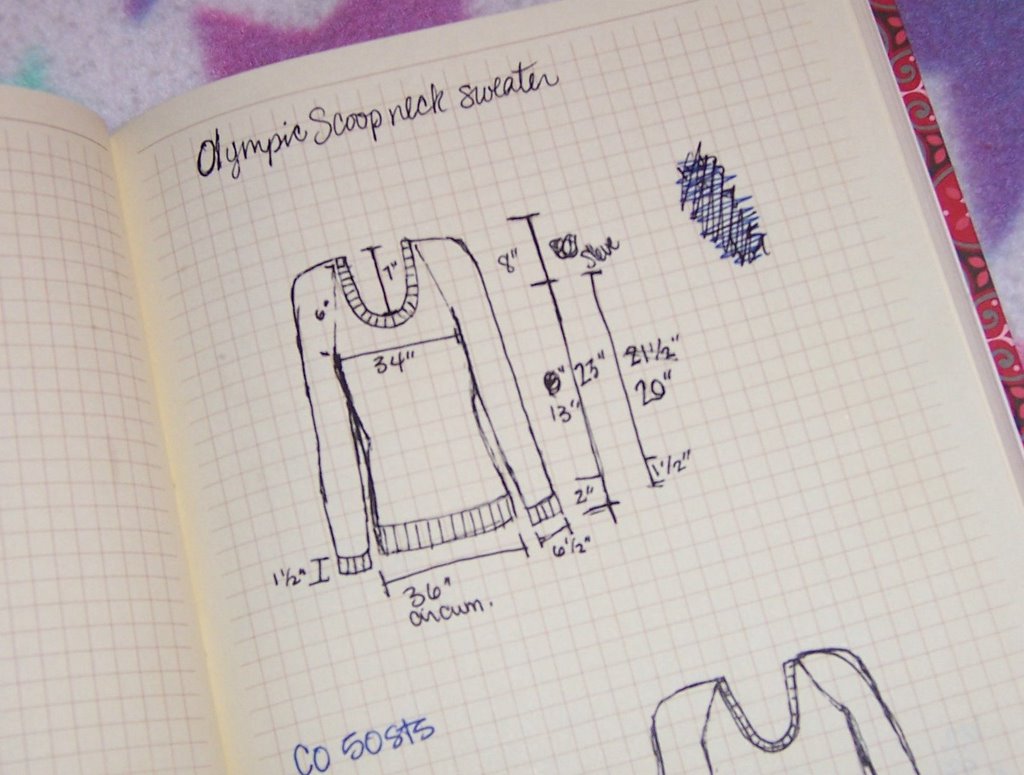 Olympic Scoopneck sweater
7"
8"
Sleeve
6"
34"
23"
21 1/2"
20"
13"
1 1/2"
2"
6 1/2"
1 1/2"
36"
circum.
CO 50sts